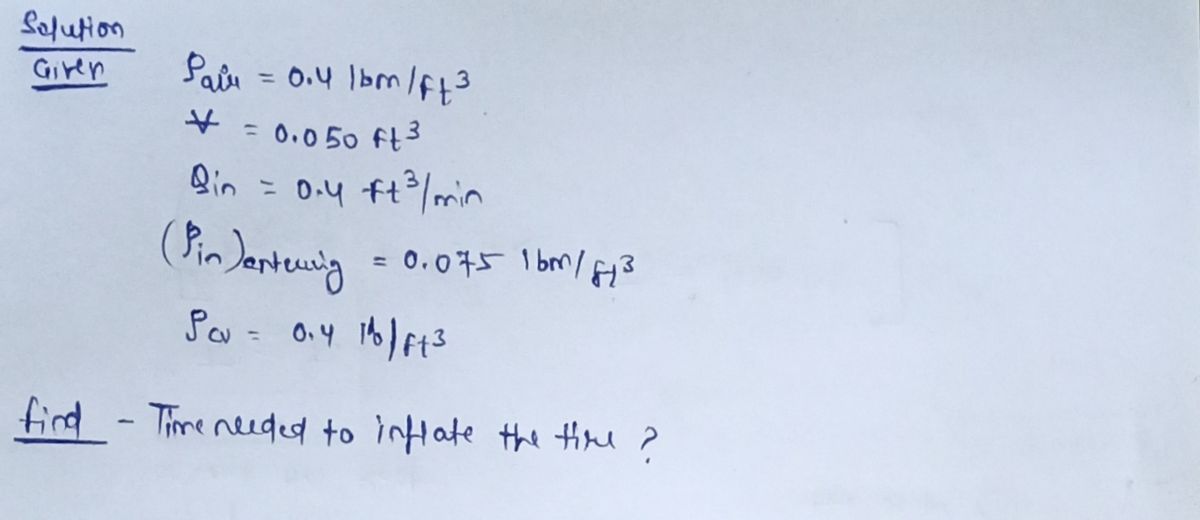 Solution
Given
ρair = 0.4 lbm/ft³
V = 0.050 ft³
Qin = 0.4 ft³/min
(ρin)entering = 0.075 lbm/ft³
ρcv = 0.4 lb/ft³
find - Time needed to inflate the tire ?